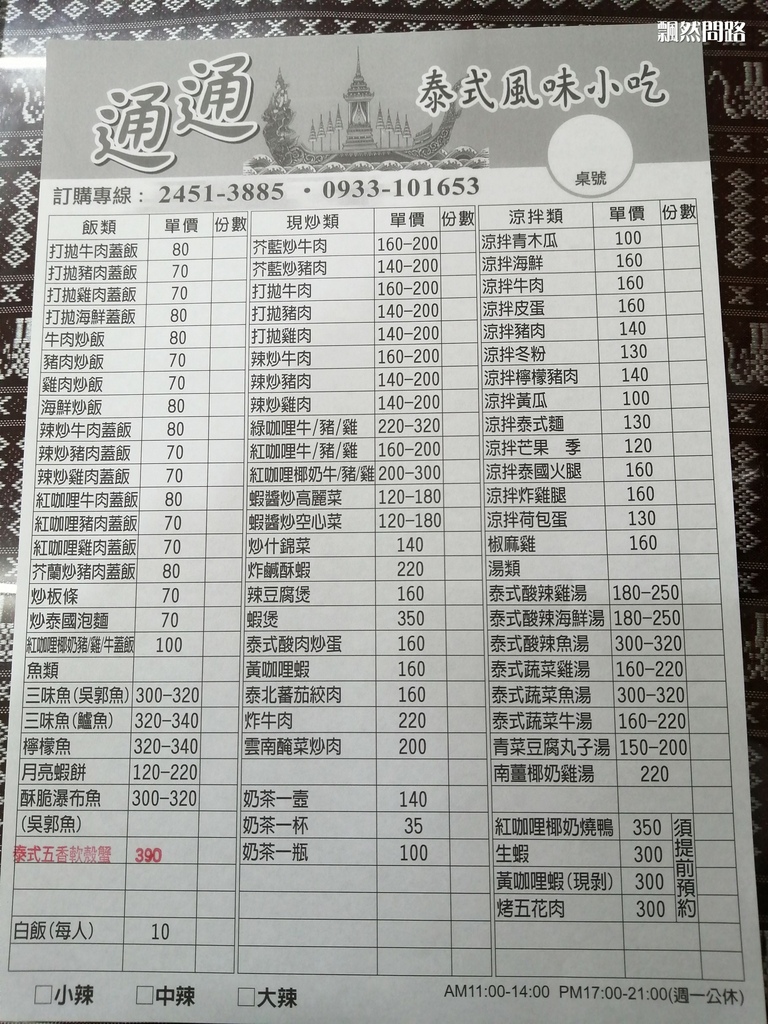 飄然問路
通通
泰式風味小吃
桌號
訂購專線： 2451-3885 ・0933-101653
飯類 單價 份數
打拋牛肉蓋飯 80
打拋豬肉蓋飯 70
打拋雞肉蓋飯 70
打拋海鮮蓋飯 80
牛肉炒飯 80
豬肉炒飯 70
雞肉炒飯 70
海鮮炒飯 80
辣炒牛肉蓋飯 80
辣炒豬肉蓋飯 70
辣炒雞肉蓋飯 70
紅咖哩牛肉蓋飯 80
紅咖哩豬肉蓋飯 70
紅咖哩雞肉蓋飯 70
芥蘭炒豬肉蓋飯 80
炒板條 70
炒泰國泡麵 70
紅咖哩椰奶豬/雞/牛蓋飯 100
魚類
三味魚(吳郭魚) 300-320
三味魚(鱸魚) 320-340
檸檬魚 320-340
月亮蝦餅 120-220
酥脆瀑布魚 300-320
(吳郭魚)
泰式五香軟殼蟹 390
白飯(每人) 10
現炒類 單價 份數
芥藍炒牛肉 160-200
芥藍炒豬肉 140-200
打拋牛肉 160-200
打拋豬肉 140-200
打拋雞肉 140-200
辣炒牛肉 160-200
辣炒豬肉 140-200
辣炒雞肉 140-200
綠咖哩牛/豬/雞 220-320
紅咖哩牛/豬/雞 160-200
紅咖哩椰奶牛/豬/雞 200-300
蝦醬炒高麗菜 120-180
蝦醬炒空心菜 120-180
炒什錦菜 140
炸鹹酥蝦 220
辣豆腐煲 160
蝦煲 350
泰式酸肉炒蛋 160
黃咖哩蝦 160
泰北蕃茄絞肉 160
炸牛肉 220
雲南醃菜炒肉 200
奶茶一壺 140
奶茶一杯 35
奶茶一瓶 100
涼拌類 單價 份數
涼拌青木瓜 100
涼拌海鮮 160
涼拌牛肉 160
涼拌皮蛋 160
涼拌豬肉 140
涼拌冬粉 130
涼拌檸檬豬肉 140
涼拌黃瓜 100
涼拌泰式麵 130
涼拌芒果 季 120
涼拌泰國火腿 160
涼拌炸雞腿 160
涼拌荷包蛋 130
椒麻雞 160
湯類
泰式酸辣雞湯 180-250
泰式酸辣海鮮湯 180-250
泰式酸辣魚湯 300-320
泰式蔬菜雞湯 160-220
泰式蔬菜魚湯 300-320
泰式蔬菜牛湯 160-220
青菜豆腐丸子湯 150-200
南薑椰奶雞湯 220
紅咖哩椰奶燒鴨 350
生蝦 300
黃咖哩蝦(現剝) 300
烤五花肉 300
須提前預約
□小辣 □中辣 □大辣
AM11:00-14:00 PM17:00-21:00(週一公休)